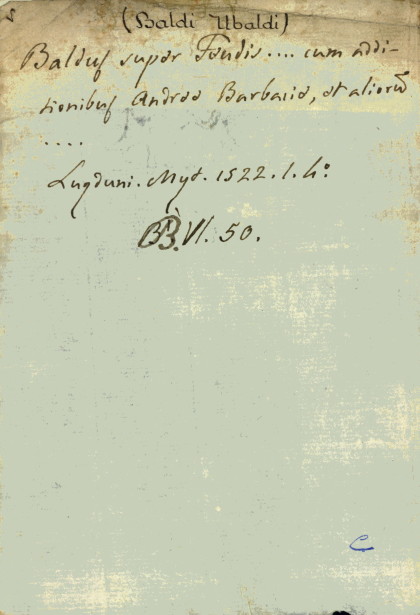 (Baldi Ubaldi)
Baldus super Feudis.... cum addi-
tionibus Andreae Barbaciae, et aliorū
....
Lugduni. Myt. 1522. 1. 4°
BB. VI. 50.
C